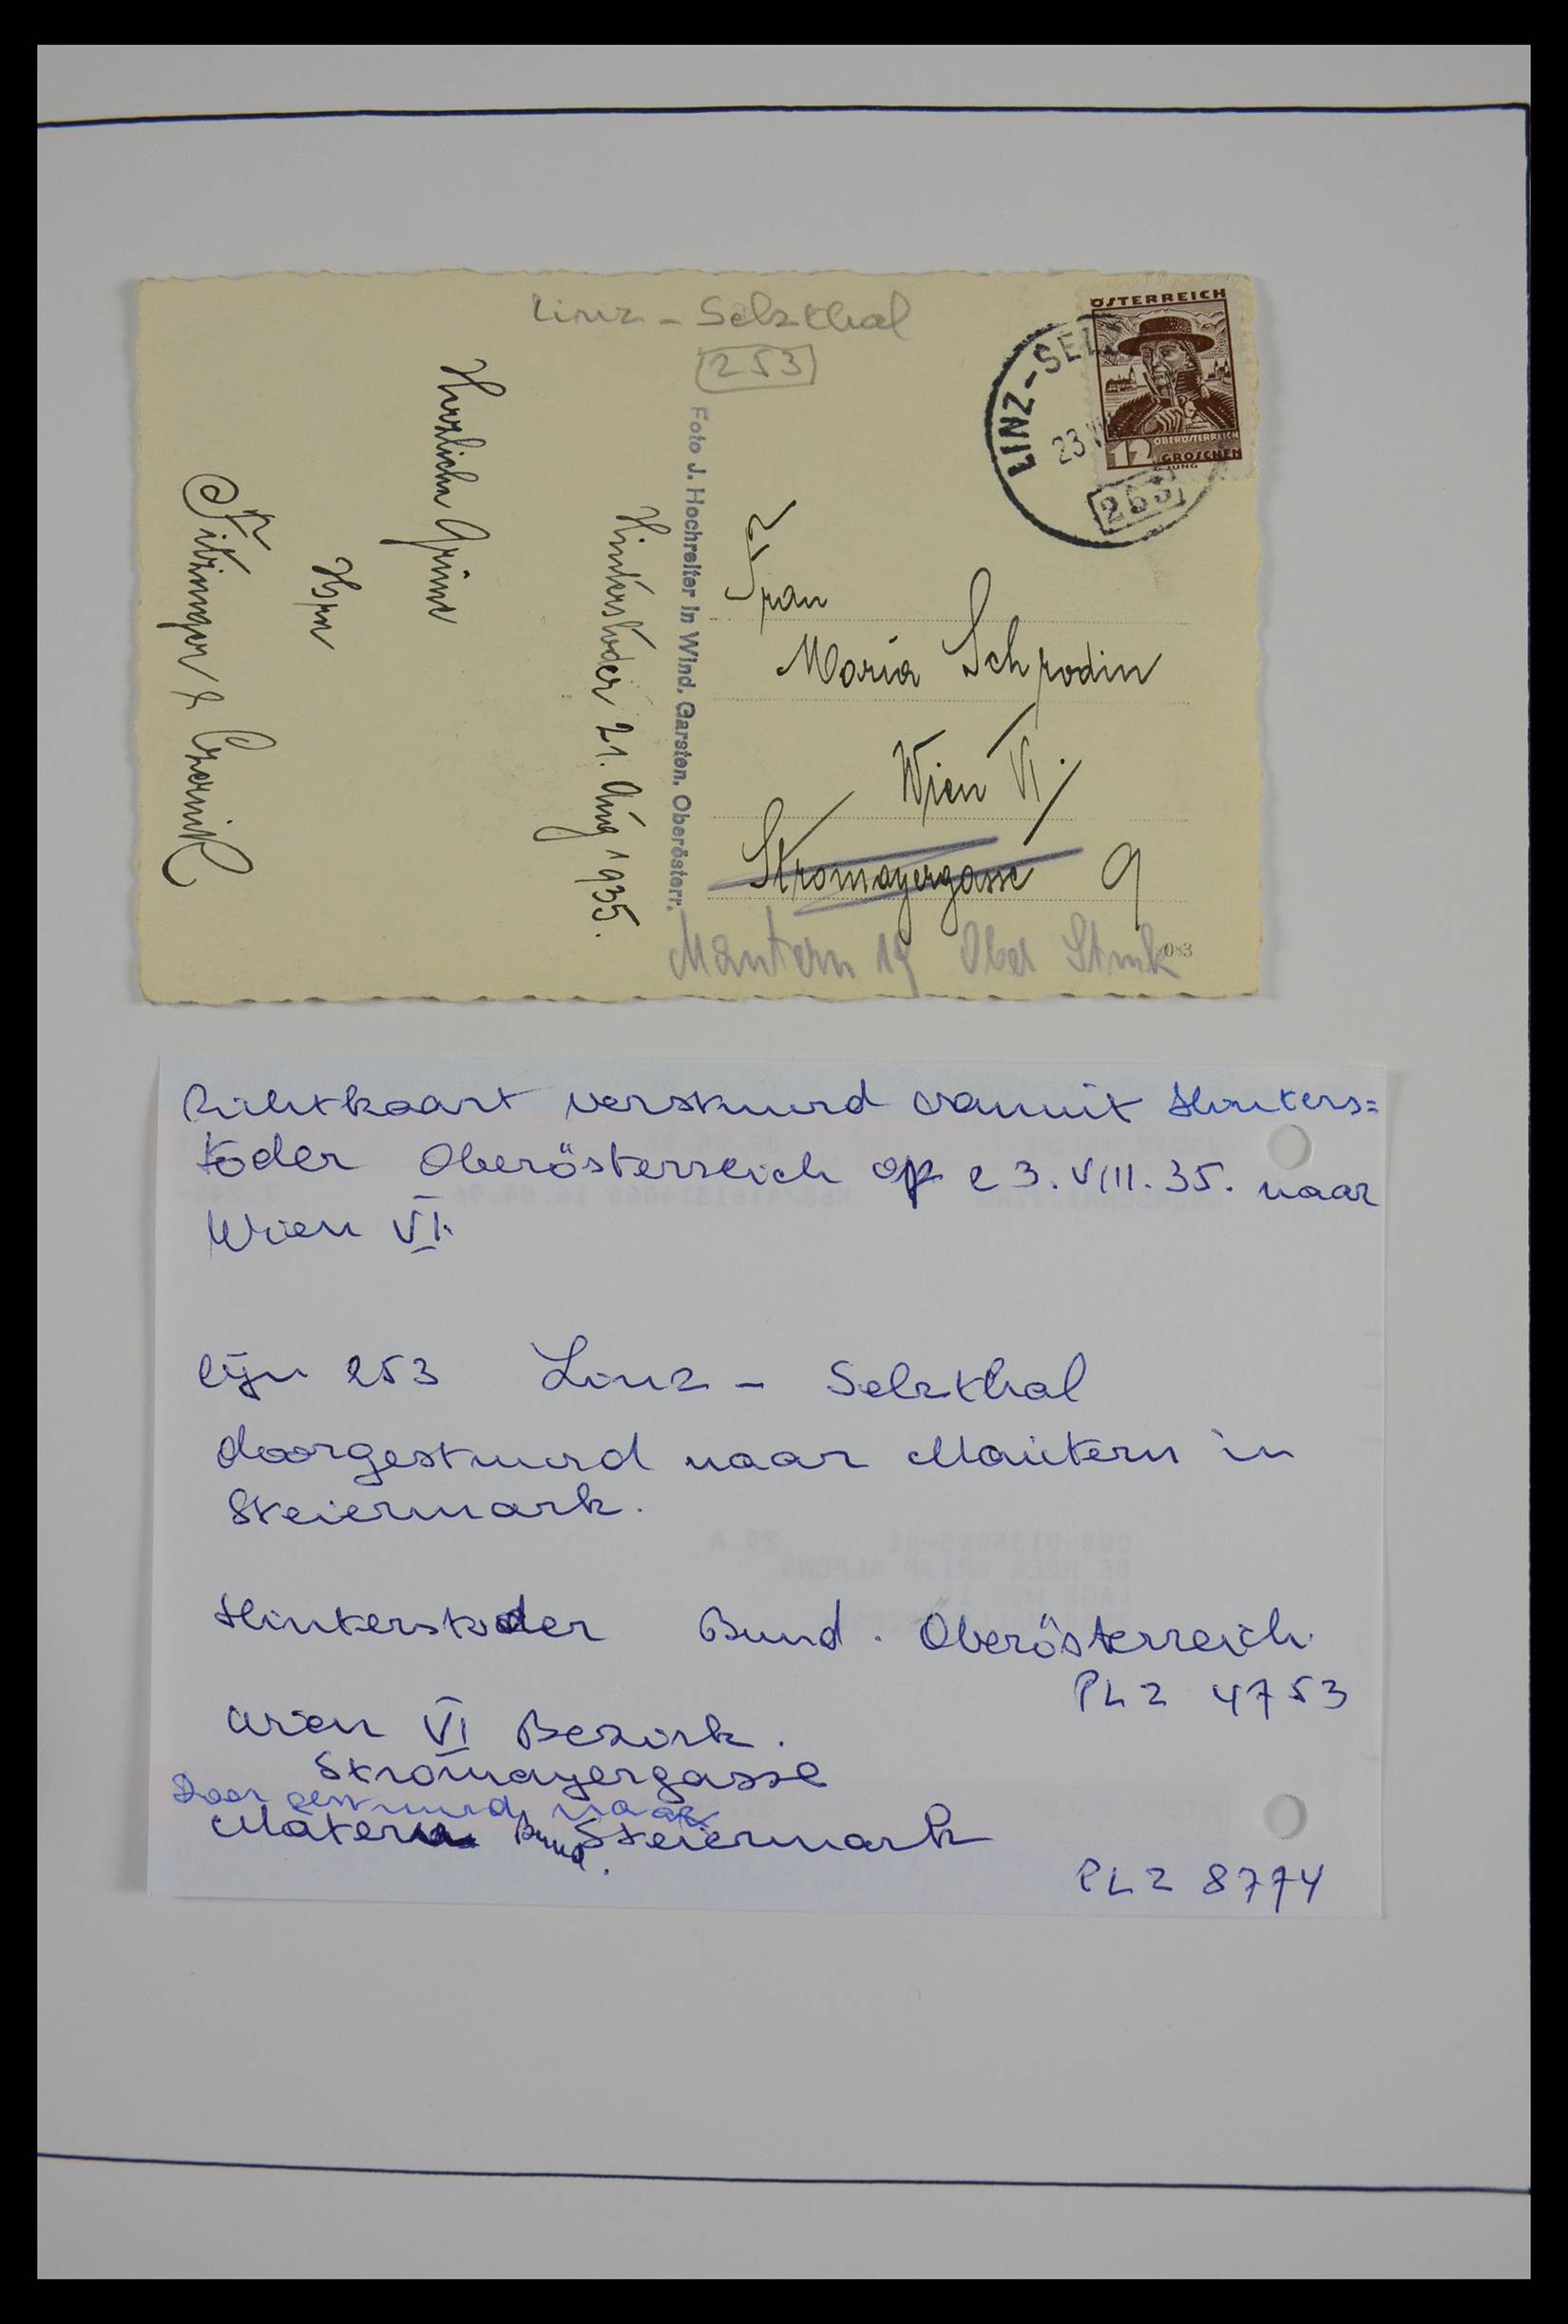 Linz - Selzthal
253
ÖSTERREICH
OBERÖSTERREICH
12 GROSCHEN
G. JUNG
LINZ-SEL
23
253
Frau
Maria Schrodin
Wien VI.
Stromayergasse 9
Mautern 19 Ober
Foto J. Hochreiter in Wind. Garsten. Oberösterr.
Hinterstoder 21. Aug 1935.
Herzliche Grüße
& Czernik
Lichtkaart verstuurd vanuit Hinters=
toder Oberösterreich op 23.VIII.35. naar
Wien VI.
Lijn 253 Linz - Selzthal
doorgestuurd naar Mautern in
Steiermark.
Hinterstoder Bund. Oberösterreich.
PLZ 4753
Wien VI Bezirk.
Stromayergasse
Doorgestuurd naar
Matern Bund. Steiermark
PLZ 8774